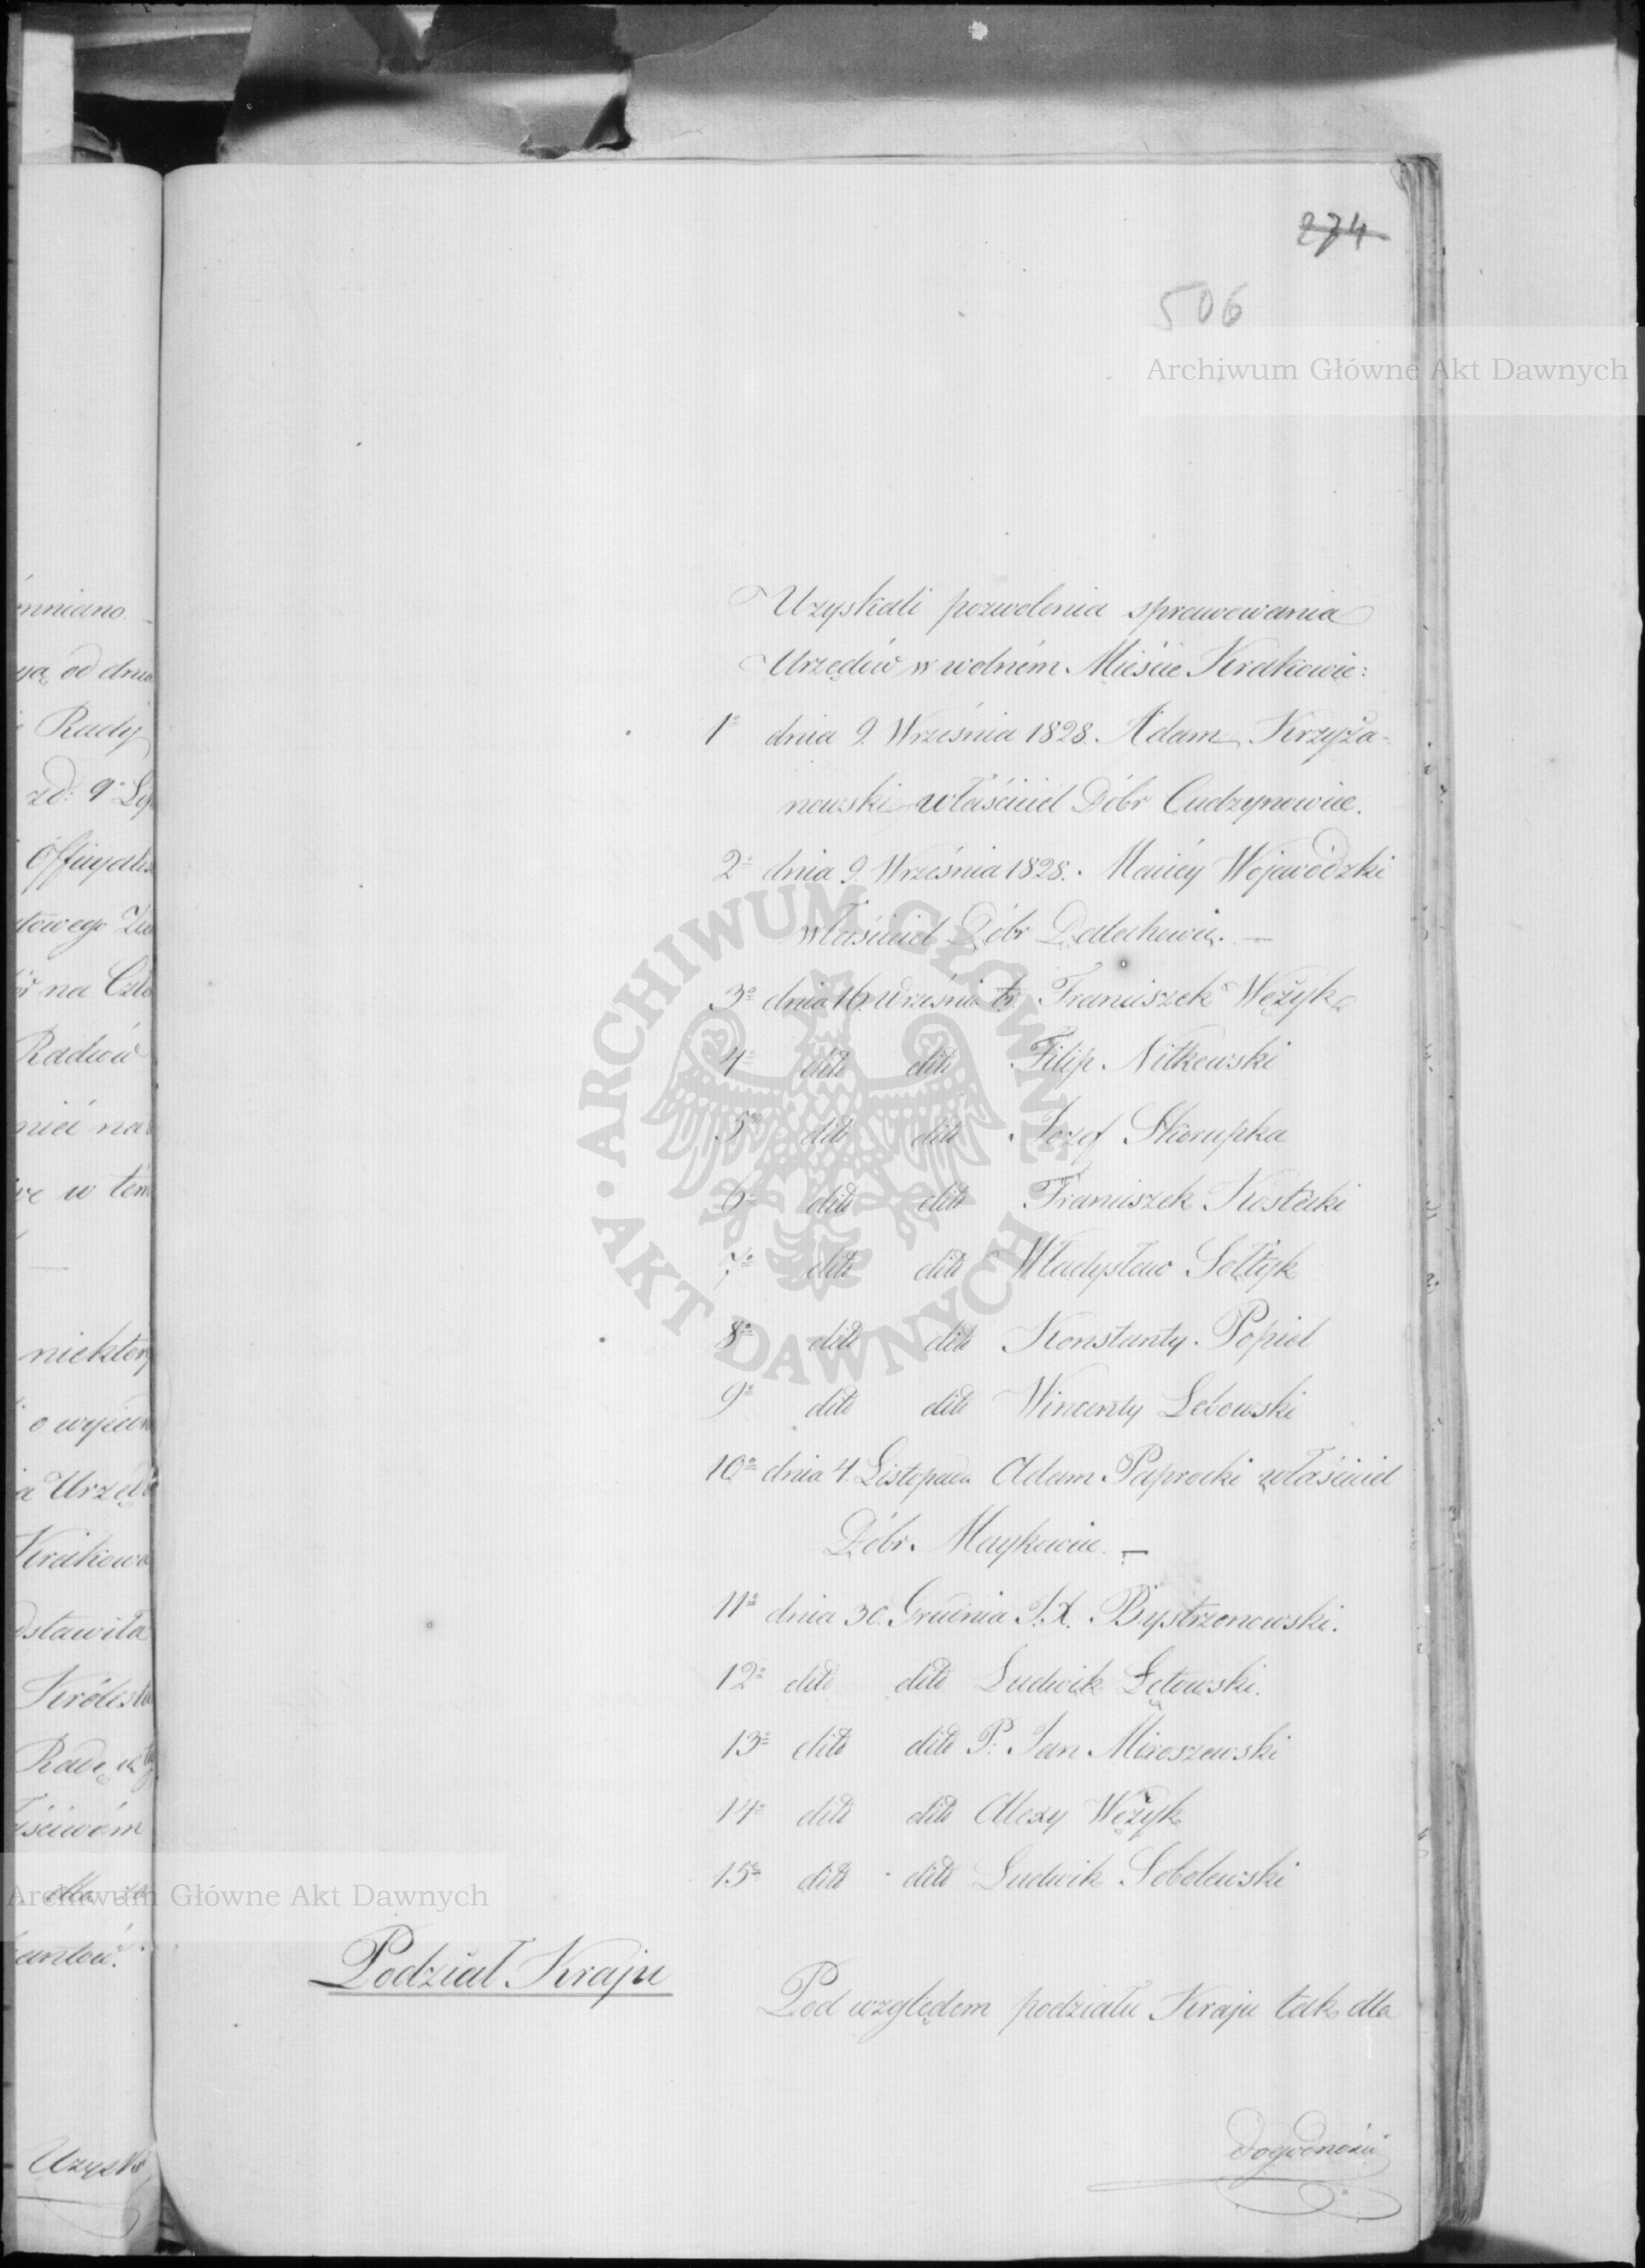 274
506
Archiwum Główne Akt Dawnych
Uzyskali pozwolenia sprawowania
Urzędów w wolném Mieście Krakowie:
1o dnia 9. Września 1828. Adam Krzyża-
nowski właściciel Dóbr Cudzynowice.
2o dnia 9. Września 1828. Maciéy Wojewódzki
właściciel Dóbr
3o dnia 16. września tr Franciszek Wężyk
4o dito dito Filip Nitkowski
5o dito dito Jozef Skorupka
6o dito dito Franciszek Kostecki
7o dito dito Władysław Sołtyk
8o dito dito Konstanty Popiel
9o dito dito Wincenty
10o dnia 4. Listopada Adam Paprocki właściciel
Dóbr Maykowice. —
11o dnia 30. Grudnia Bystrzonowski.
12o dito dito Ludwik Łętowski.
13o dito dito P. Jan Mieroszewski
14o dito dito Alexy Wężyk
15o dito dito Ludwik Sobolewski
Podział Kraju
Pod względem podziału Kraju tak dla
dogodności
mniano.
od dnia
Rady
zd: 9o
na
Radców
na
w tém
Kraków
dstawiła
Królest
Radę
dla
Uzysk
Archiwum Główne Akt Dawnych
ARCHIWUM GŁÓWNE • AKT DAWNYCH •